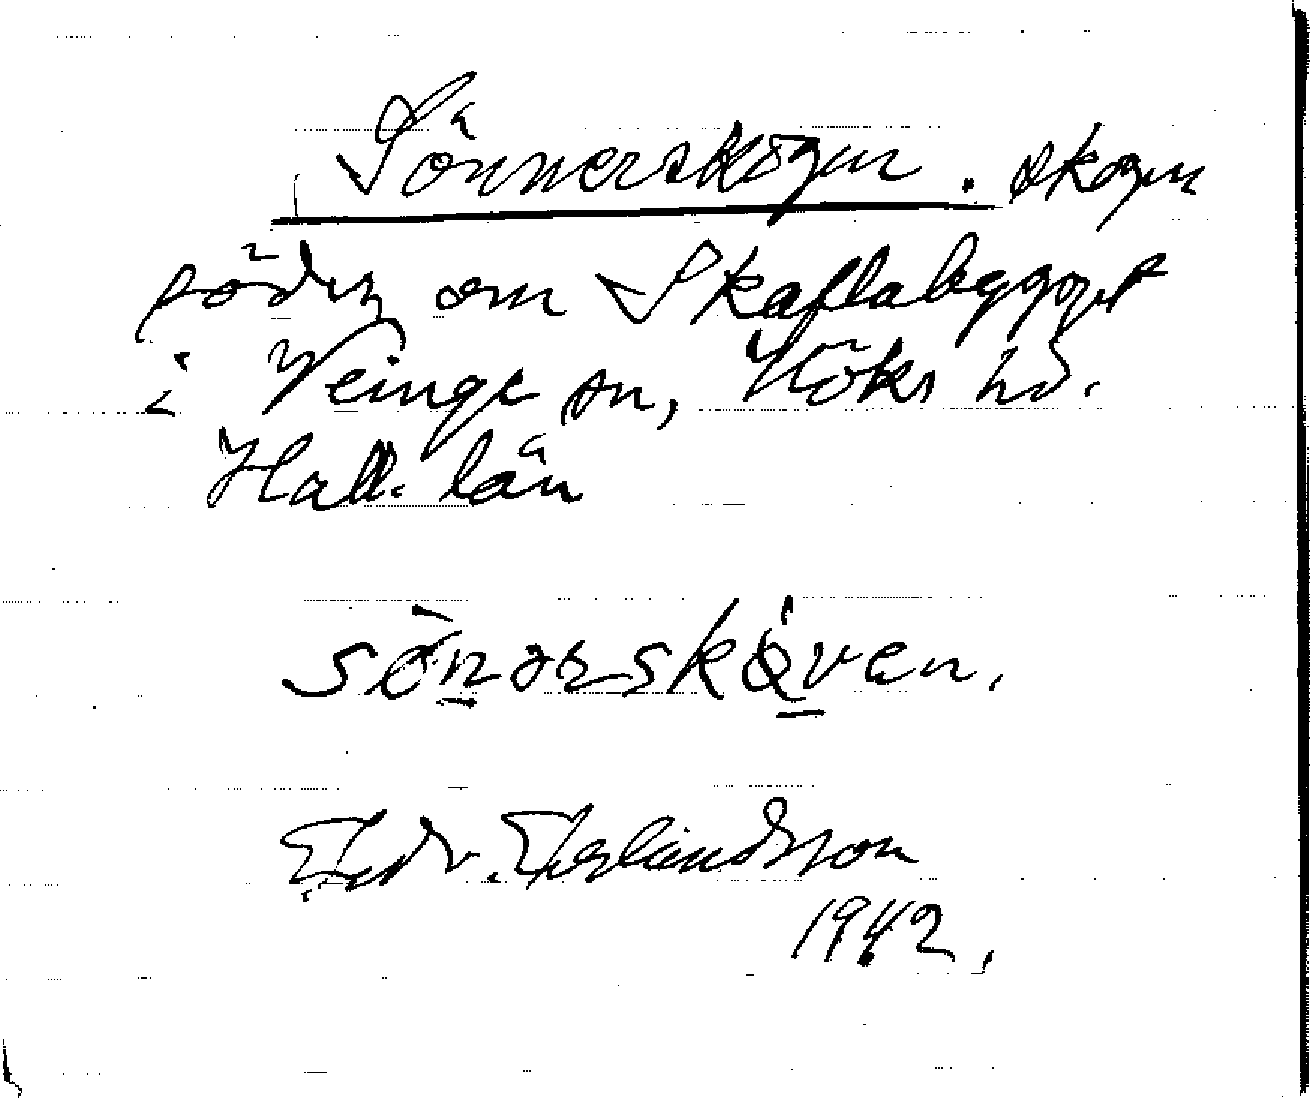 Sönnerskogen. skogen
söder om Skaflabygget
i Veinge sn, Höks hd.
Hall. län
sönərskòven.
Edv. Erlandsson
1942.